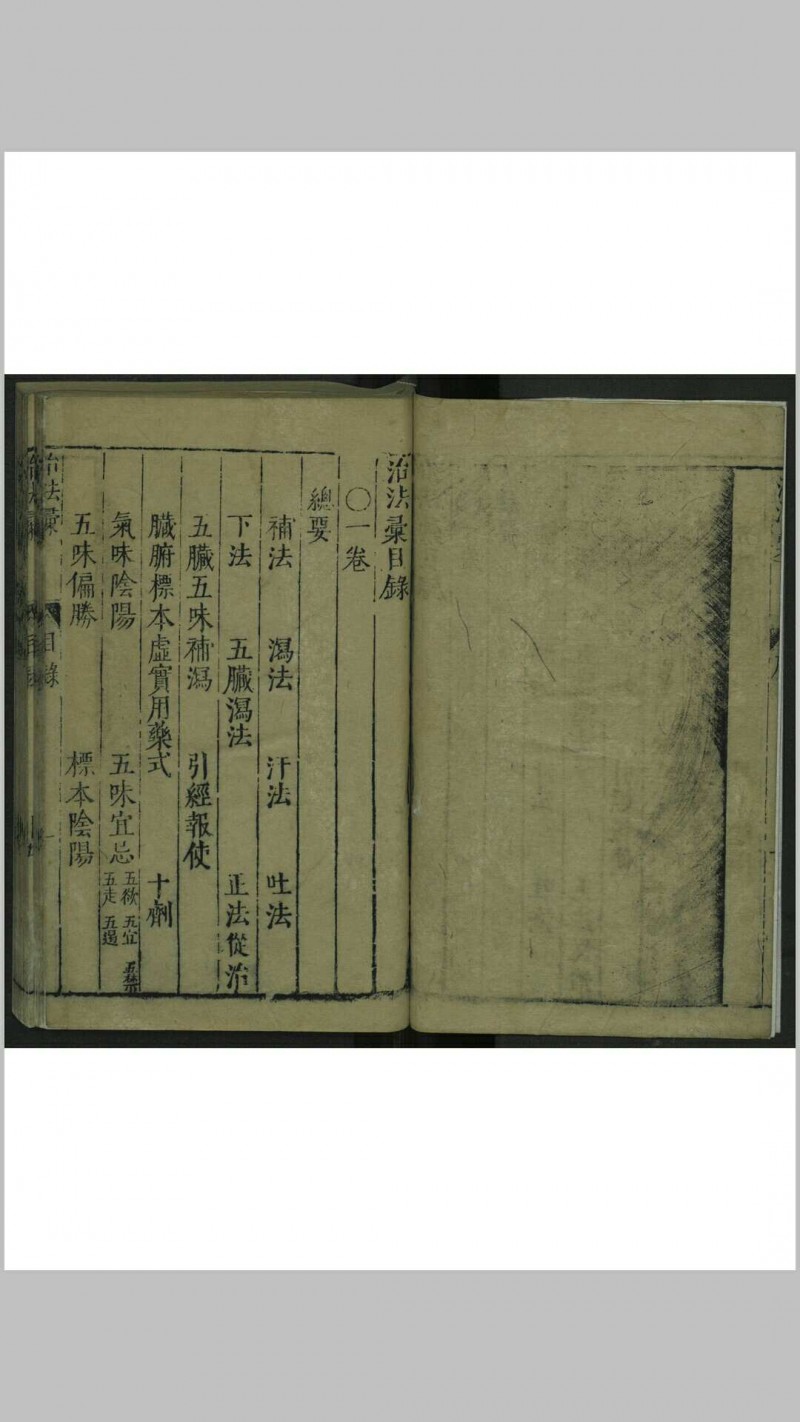 治法彙目錄
〇一卷
總要
補法 瀉法 汗法 吐法
下法 五臟瀉法 正法從治
五臟五味補瀉 引經報使
臟腑標本虛實用藥式 十劑
氣味陰陽 五味宜忌 五欲 五宜 五禁 五走 五過
五味偏勝 標本陰陽
治法彙 目錄 一